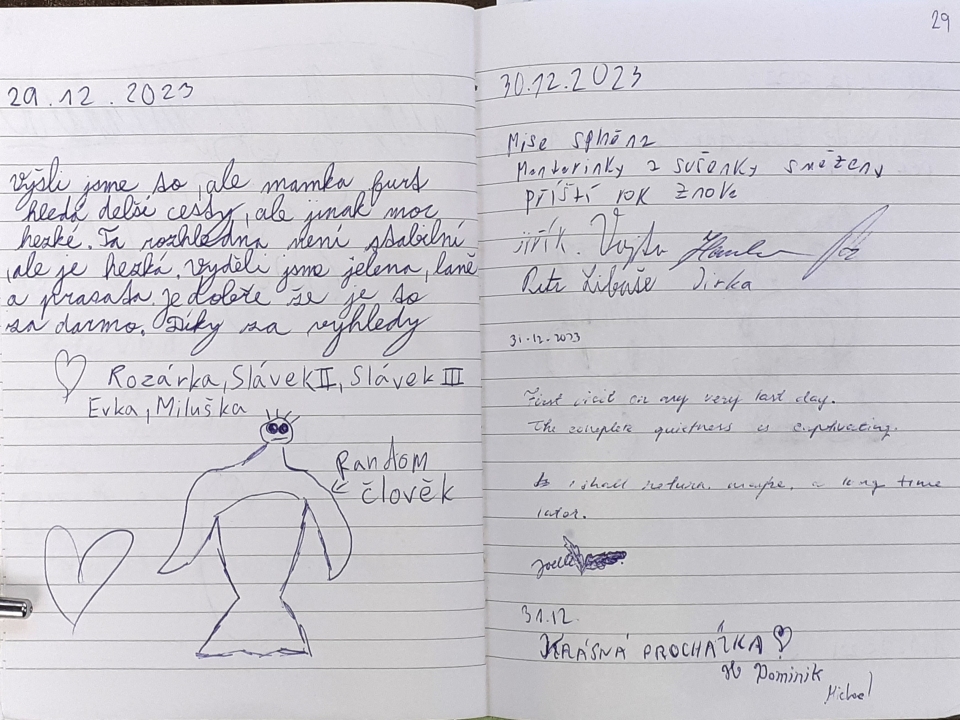 29.12.2023
Vyšli jsme to, ale mamka furt
hledá delší cesty, ale jinak moc
hezké. Ta rozhledna není stabilní
, ale je hezká. Vyděli jsme jelena, laně
a prasata. je dobře že je to
za darmo. Díky za výhledy
Rozárka, Slávek II, Slávek III
Evka, Miluška
Random
člověk
29
30.12.2023
Mise splněna
z sušenky snězeny
příští rok znova
jiřík. Vojta
Petr Libuše Jirka
31.12.2023
First visit on my very last day.
The complete quietness is captivating.
I shall return, maybe, a long time
later.
Joelle
31.12.
KRÁSNÁ PROCHÁZKA
Dominik
Michael